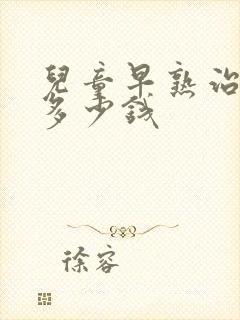 兒童早熟治
多少錢
徐容